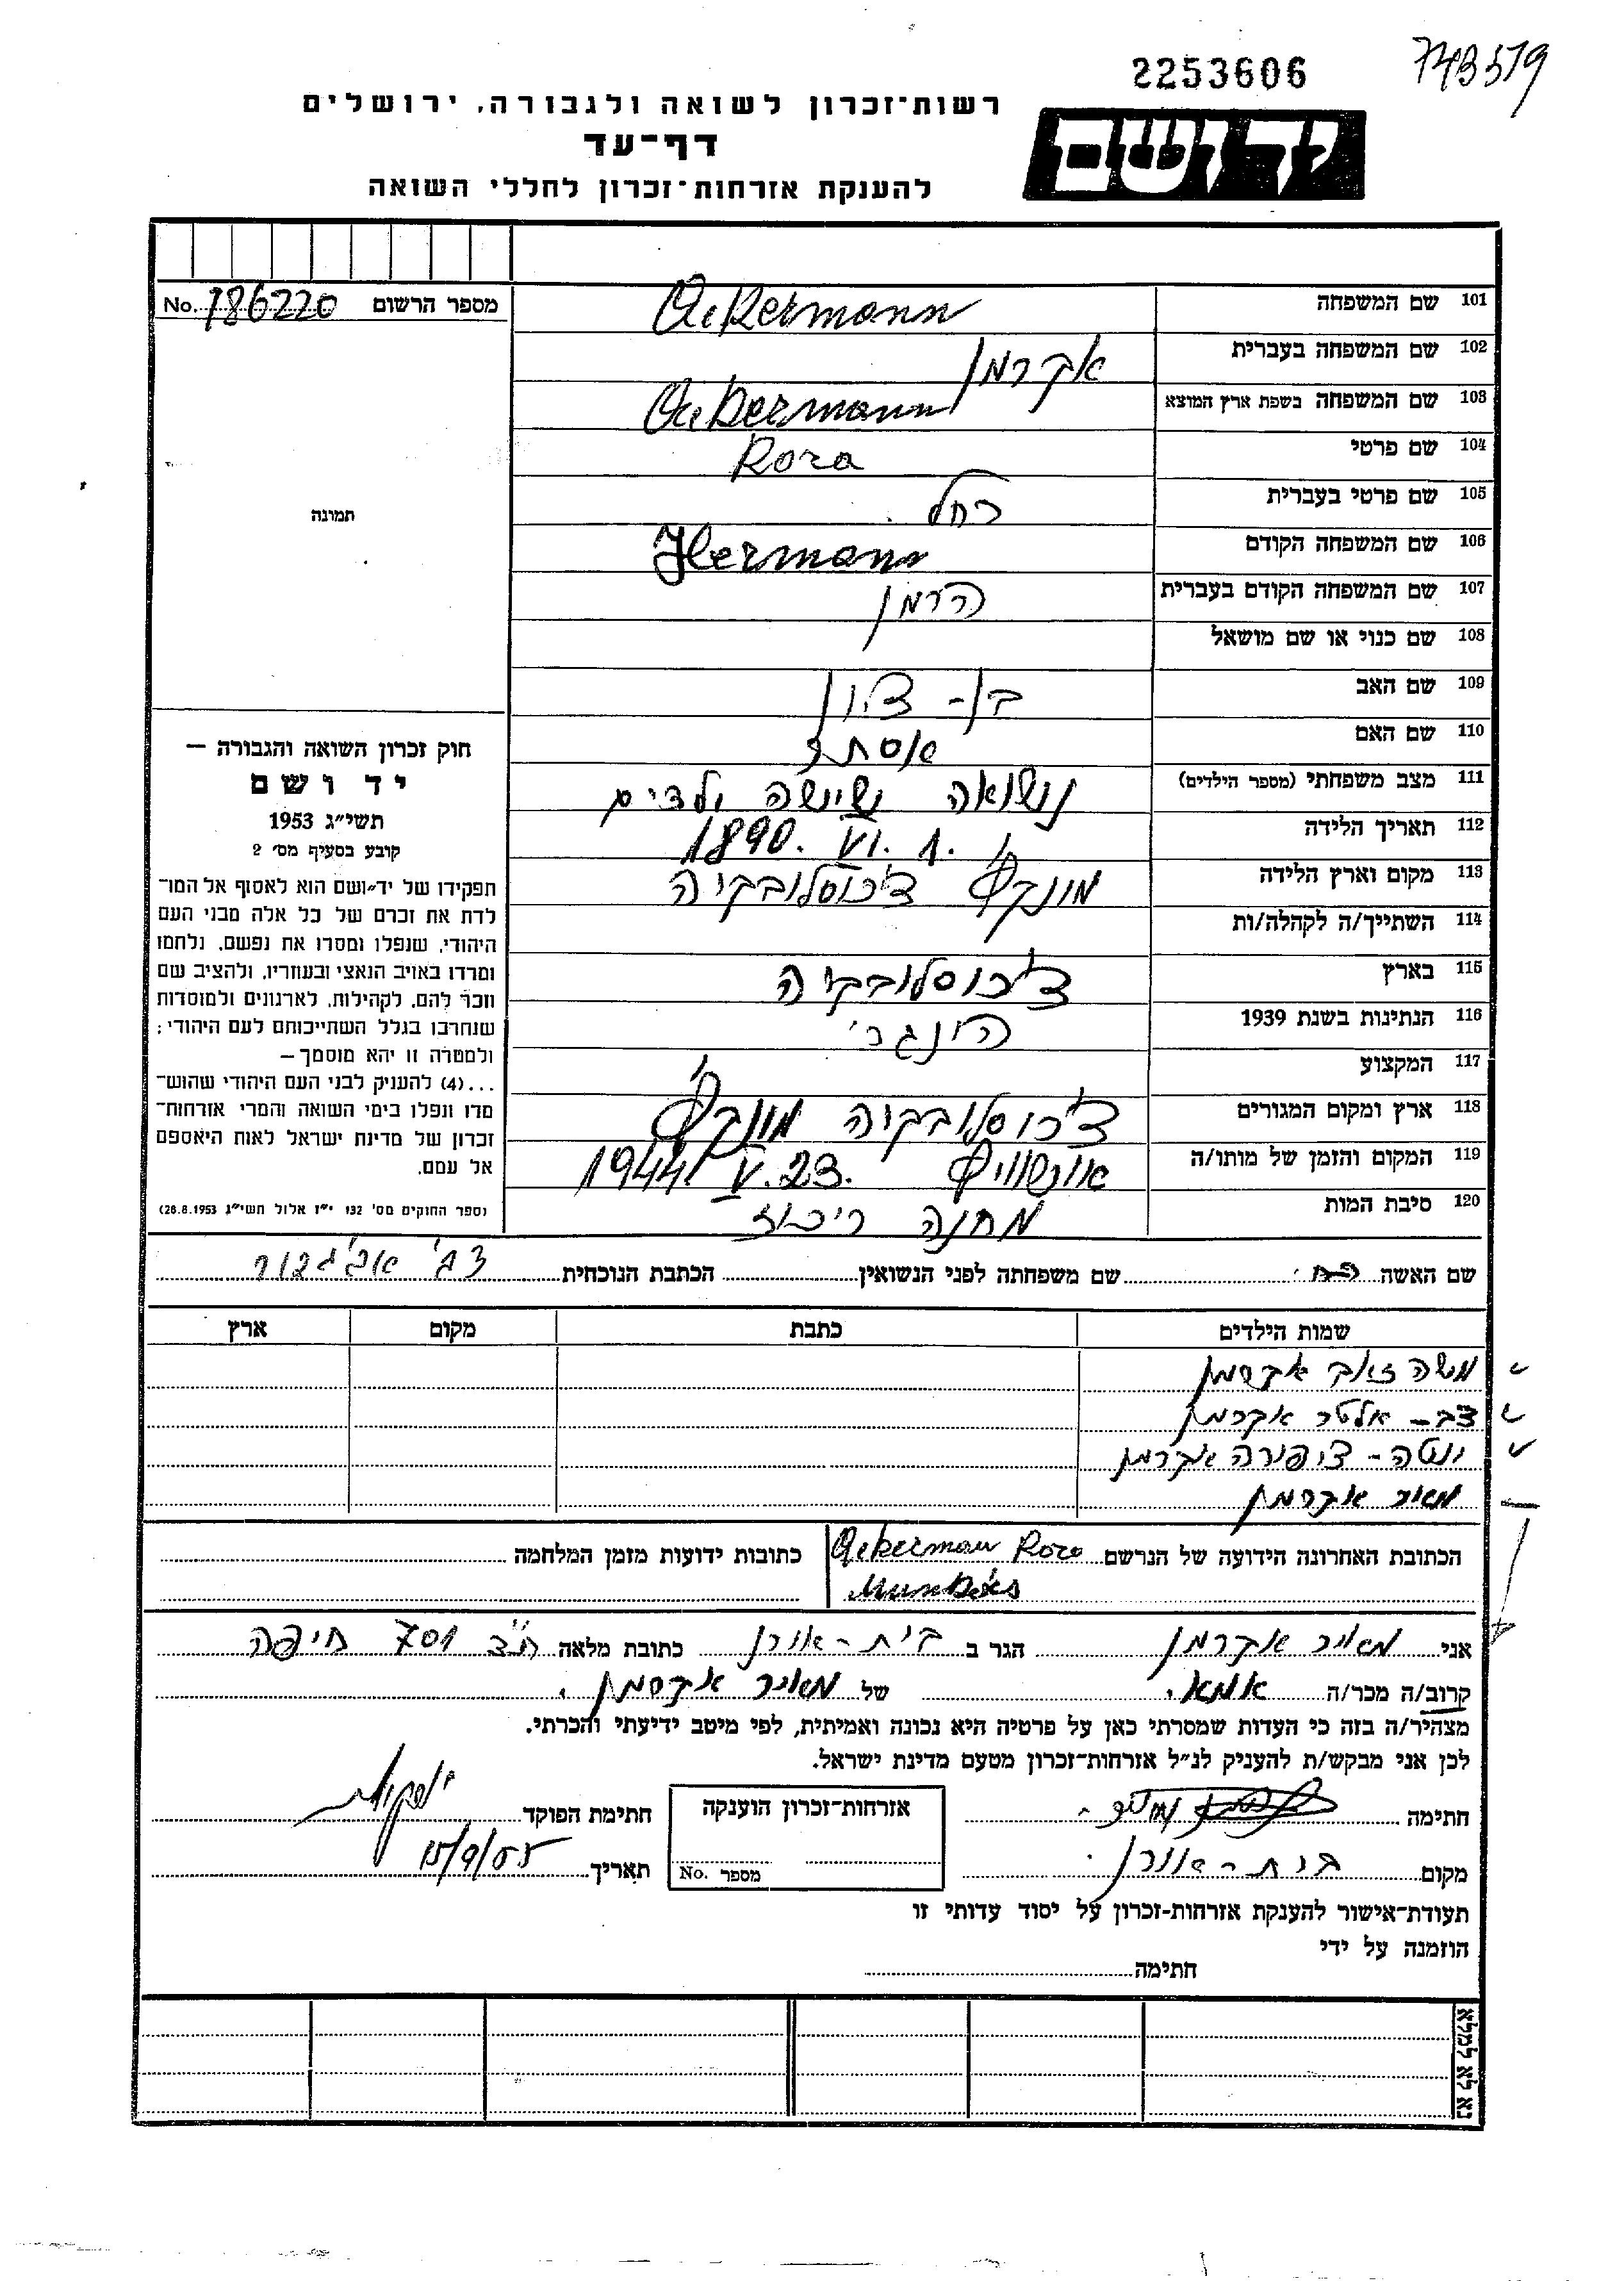 2253606
743519
רשות־זכרון לשואה ולגבורה, ירושלים
דף־עד
להענקת אזרחות־זכרון לחללי השואה
יד ושם
מספר הרשום No. 786220
תמונה
101 שם המשפחה Ackermann
102 שם המשפחה בעברית אקרמן
103 שם המשפחה בשפת ארץ המוצא Ackermann
104 שם פרטי Roza
105 שם פרטי בעברית רחל
106 שם המשפחה הקודם Hermann
107 שם המשפחה הקודם בעברית הרמן
108 שם כנוי או שם מושאל
109 שם האב בן-ציון
110 שם האם אסתר
111 מצב משפחתי (מספר הילדים) נשואה ששה ילדים
112 תאריך הלידה 1890. VI. 1.
113 מקום וארץ הלידה מונקץ' צ'כוסלובקיה
114 השתייך/ה לקהלה/ות
115 בארץ צ'כוסלובקיה
116 הנתינות בשנת 1939 הונגרי
117 המקצוע
118 ארץ ומקום המגורים צ'כוסלובקיה מונקץ'
119 המקום והזמן של מותו/ה אושוויץ 1944 V. 23.
120 סיבת המות מחנה ריכוז
חוק זכרון השואה והגבורה —
יד ושם
תשי״ג 1953
קובע בסעיף מס׳ 2
תפקידו של יד־ושם הוא לאסוף אל המו־
לדת את זכרם של כל אלה מבני העם
היהודי, שנפלו ומסרו את נפשם, נלחמו
ומרדו באויב הנאצי ובעוזריו, ולהציב שם
וזכר להם, לקהילות, לארגונים ולמוסדות
שנחרבו בגלל השתייכותם לעם היהודי;
ולמטרה זו יהא מוסמך—
...(4) להעניק לבני העם היהודי שהוש־
מדו ונפלו בימי השואה והמרי אזרחות־
זכרון של מדינת ישראל לאות היאספם
אל עמם.
(ספר החוקים מס׳ 132 י״ז אלול תשי״ג 28.8.1953)
שם האשה שם משפחתה לפני הנשואין הכתבת הנוכחית
שמות הילדים כתבת מקום ארץ
משה זאב אקרמן
צבי- אלטר אקרמן
יוטה- ציפורה אקרמן
מאיר אקרמן
הכתובת האחרונה הידועה של הנרשם Ackerman Roza כתובות ידועות מזמן המלחמה
Munkács
אני מאיר אקרמן הגר ב בית-אורן כתובת מלאה ת״ד 701 חיפה
קרוב/ה מכר/ה אמא. של מאיר אקרמן.
מצהיר/ה בזה כי העדות שמסרתי כאן על פרטיה היא נכונה ואמיתית, לפי מיטב ידיעתי והכרתי.
לכן אני מבקש/ת להעניק לנ״ל אזרחות־זכרון מטעם מדינת ישראל.
חתימה אזרחות־זכרון הוענקה חתימת הפוקד
מקום בית-אורן. מספר No. תאריך 15/9/55
תעודת־אישור להענקת אזרחות-זכרון על יסוד עדותי זו
הוזמנה על ידי
חתימה
נא לא למלא